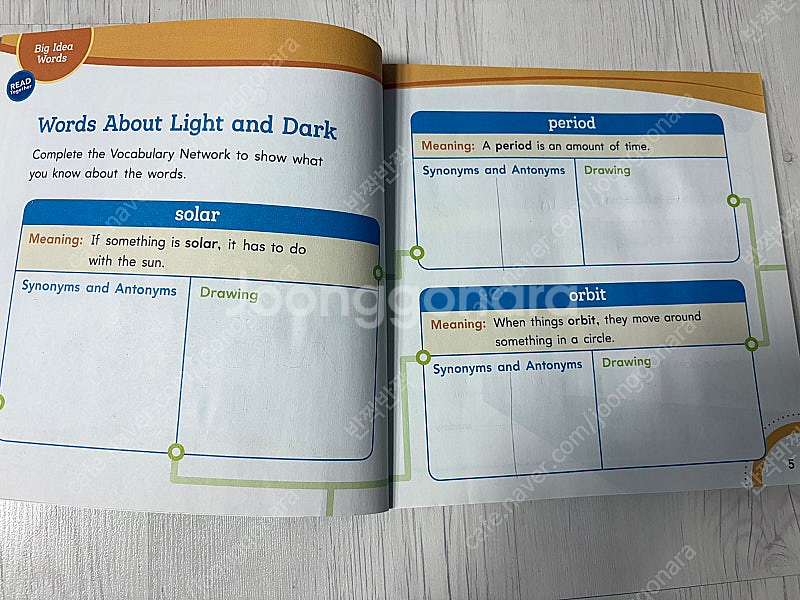 Big Idea
Words
READ
Together
Words About Light and Dark
Complete the Vocabulary Network to show what
you know about the words.
solar
Meaning: If something is solar, it has to do
with the sun.
Synonyms and Antonyms
Drawing
period
Meaning: A period is an amount of time.
Synonyms and Antonyms
Drawing
orbit
Meaning: When things orbit, they move around
something in a circle.
Synonyms and Antonyms
Drawing
5
Joonggonara
cafe.naver.com/joonggonara